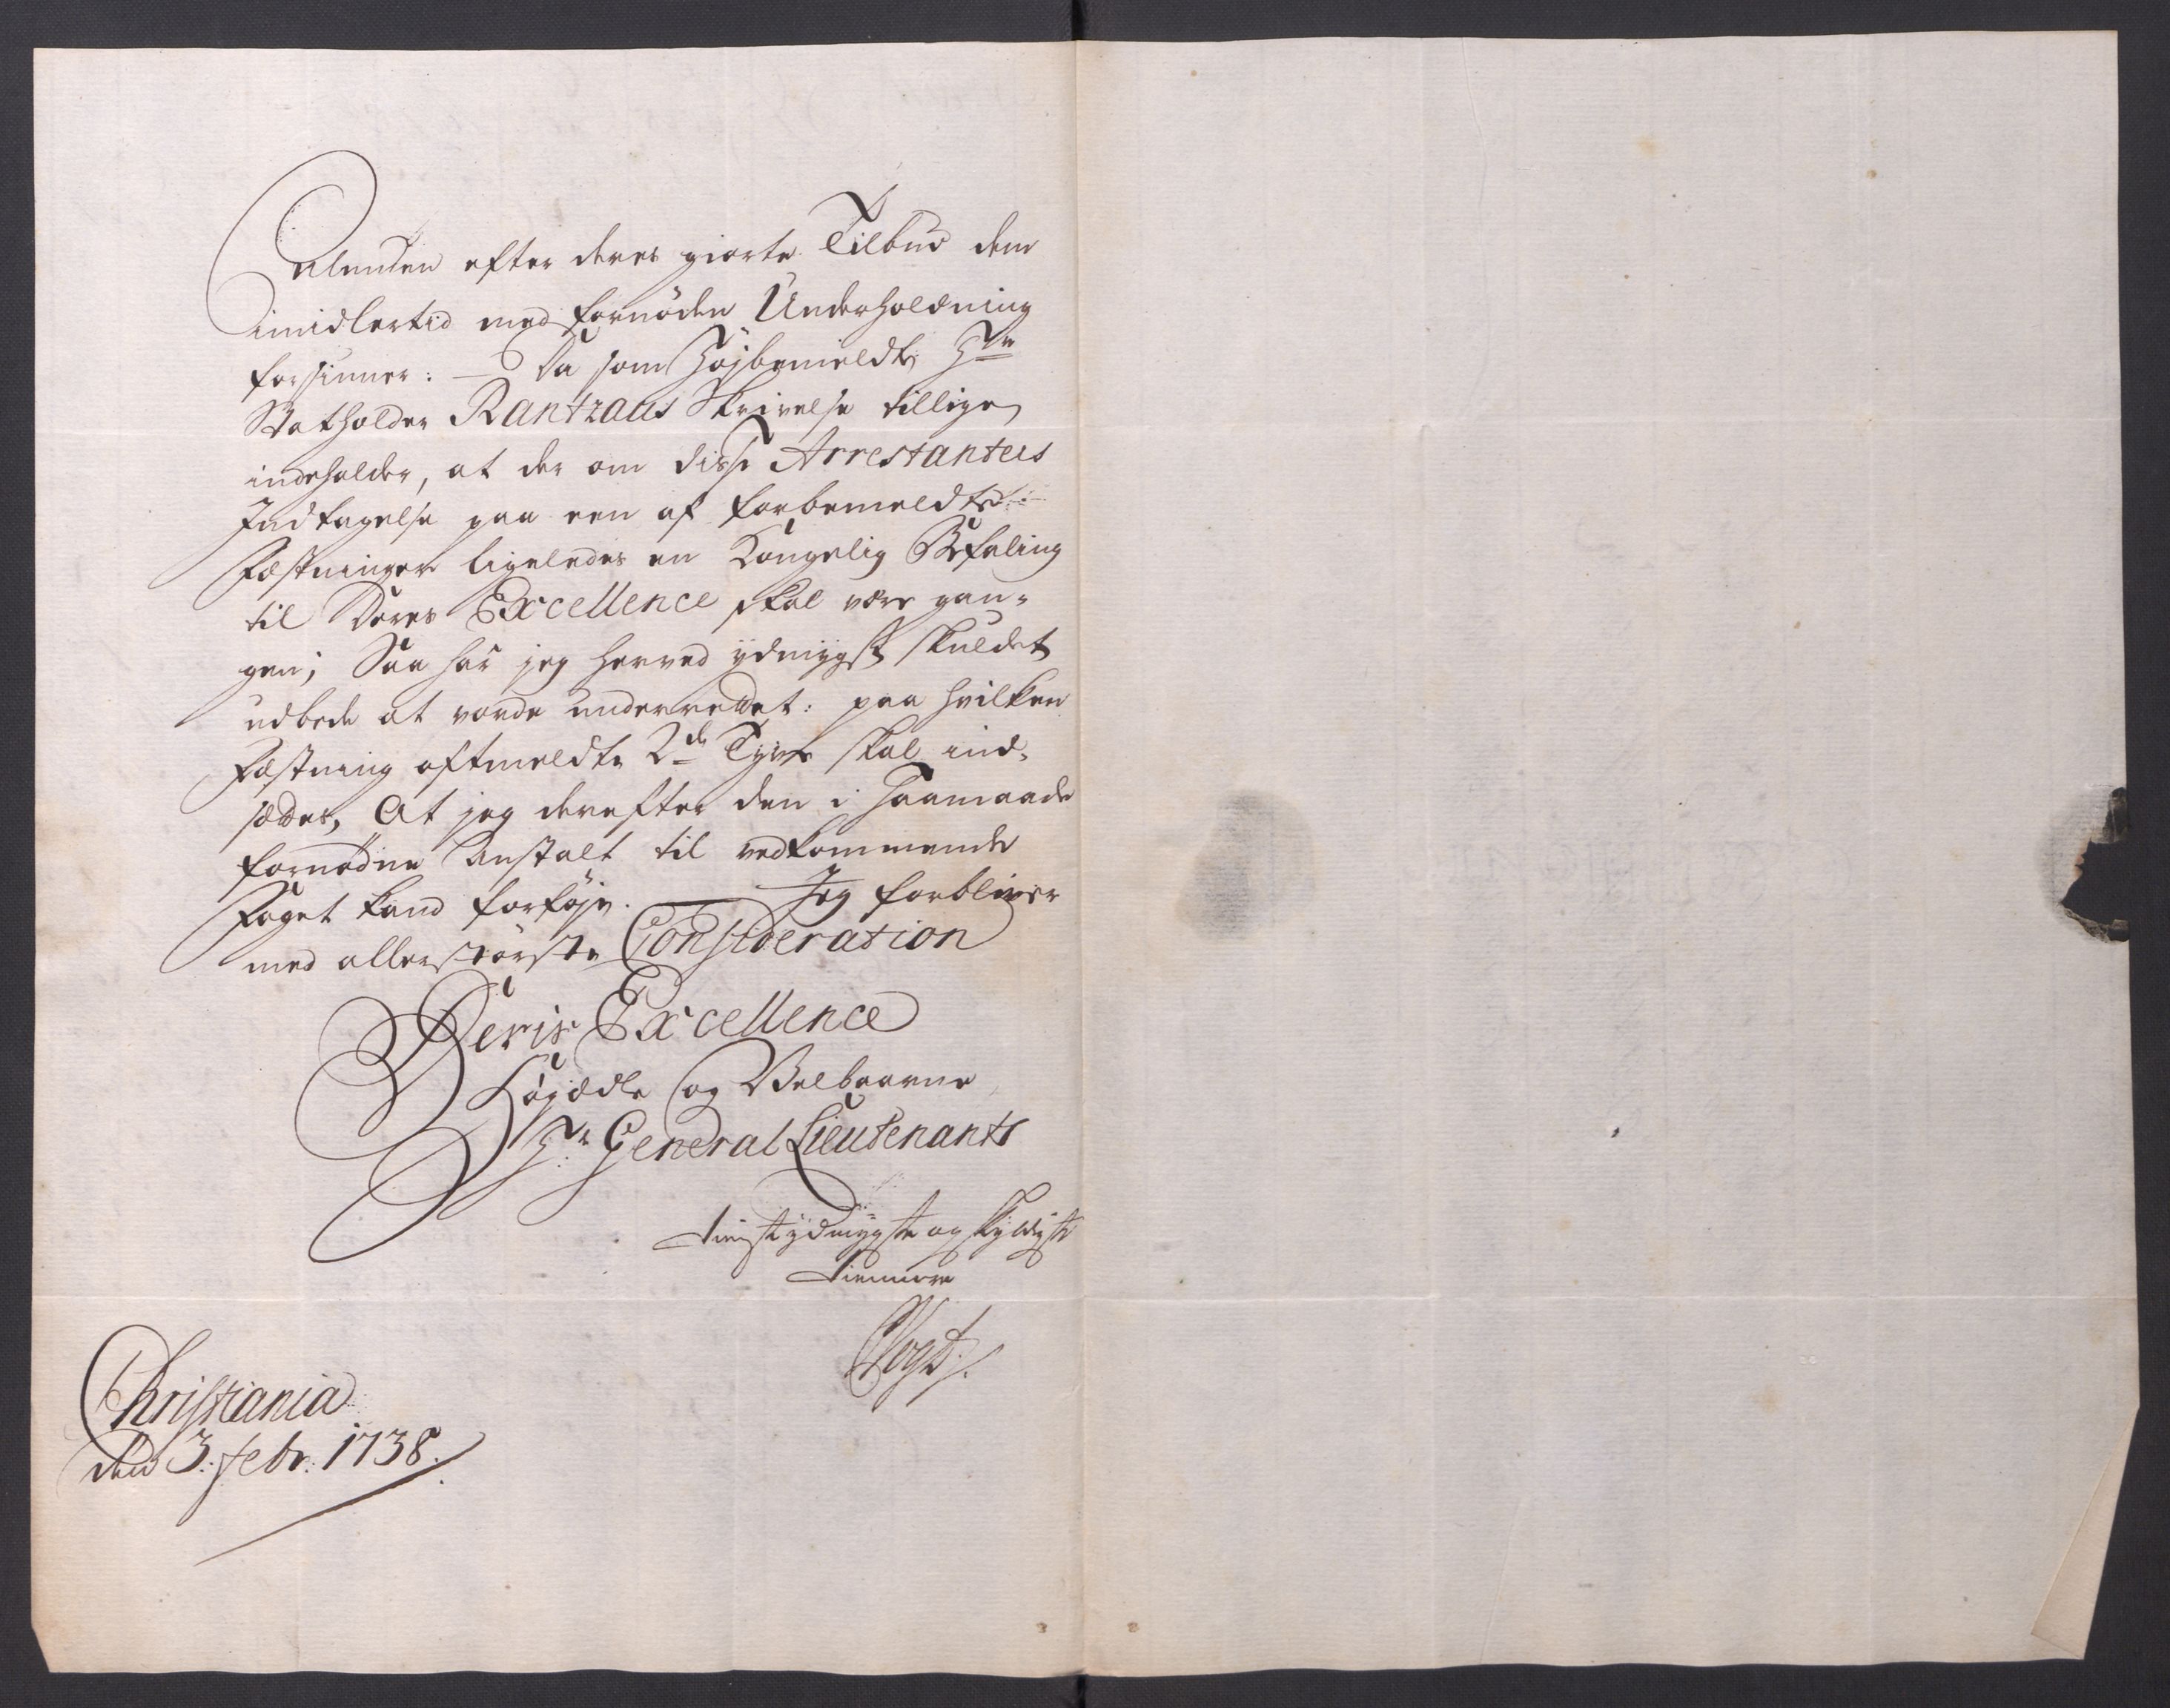 Almuen efter deres giorte Tilbud dem
imidlertid med fornøden Underholdning
forsiuner: — Da som Højbemeldte Hr
Statholder Rantzaus Skrivelse tillige
indeholder, at der om disse Arrestanteres
Indtagelse paa een af forbemeldte
Fæstninger ligeledes en Kongelig Befaling
til Deres Excellence skal være gan-
gen; Saa har jeg herved ydmygst skuldet
udbede at vorde underrettet: paa hvilken
Fæstning oftmeldte 2de Tyve skal ind-
sættes, At jeg derefter den i saamaade
fornødne Anstalt til vedkommende
Foget kand forføje. — Jeg forbliver
med allerstørste Consideration
Deris Excellence
Højædle og Velbaarne
Hr General Lieutenants
Tienstydmygste og skyldigste
Tienere
Vogt/.
Christiania
den 3. febr: 1738.